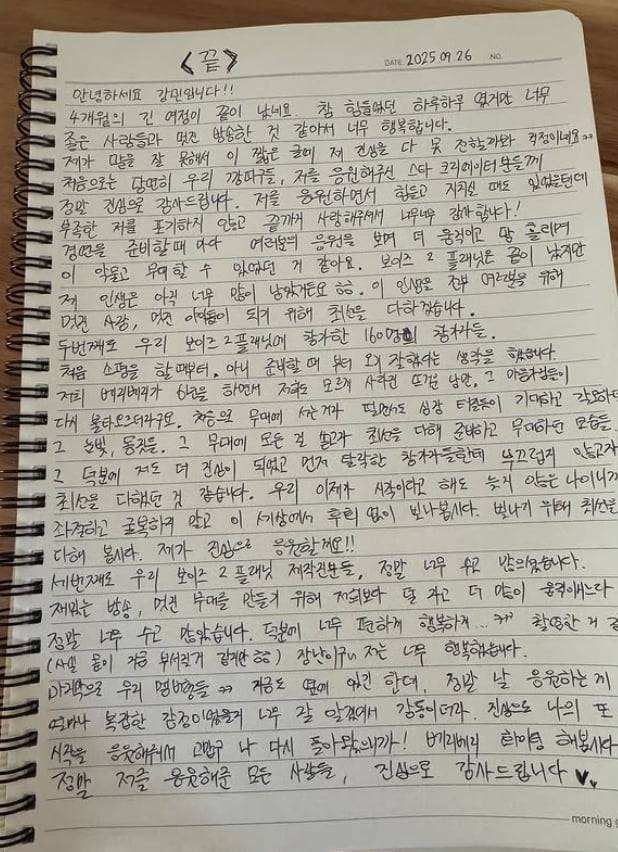 <끝>
DATE. 2025 09. 26 NO.
안녕하세요 강민입니다!!
4개월의 긴 여정이 끝이 났네요. 참 힘들었던 하루하루 였지만 너무
좋은 사람들과 멋진 방송한 것 같아서 너무 행복합니다.
제가 말을 잘 못해서 이 짧은 글에 제 진심을 다 못 전할까봐 걱정이네요ㅠㅠ
처음으로는 당연히 우리 깡파구들, 저를 응원해주신 스타 크리에이터분들께
정말 진심으로 감사드립니다. 저를 응원하면서 힘들고 지치실 때도 있었을텐데
부족한 저를 포기하지 않고 끝까지 사랑해주셔서 너무너무 감사합니다!
경연을 준비할때 마다 여러분의 응원을 보며 더 움직이고 땀 흘리며
이 악물고 무대할 수 있었던 거 같아요. 보이즈 2 플래닛은 끝이 났지만
제 인생은 아직 너무 많이 남았거든요 ㅎㅎ. 이 인생을 전부 여러분을 위해
멋진 사람, 멋진 아이돌이 되기 위해 최선을 다하겠습니다.
두번째로 우리 보이즈 2 플래닛에 참가한 160명의 참가자들.
처음 스핑을 할때부터. 아니 준비할 때 부터 오기 잘했다는 생각을 했습니다.
저희 베리베리가 6년을 하면서 저희도 모르게 사라진 뜨거운 낭만. 그 마음가짐들이
다시 불타오르더라구요. 처음으로 무대에 서는거라 떨면서도 심장 터질듯이 기대하고 각오하던
그 눈빛, 몸짓들. 그 무대에 모든 걸 쏟고자 최선을 다해 준비하고 무대하던 모습들.
그 덕분에 저도 더 진심이 되었고 먼저 탈락한 참가자들한테 부끄럽지 않고자
최선을 다했던 것 같습니다. 우리 이제가 시작이라고 해도 늦지 않은 나이니까
좌절하고 굴복하지 말고 이 세상에서 후회 없이 빛나봅시다. 빛나기 위해 최선을
다해 봅시다. 제가 진심으로 응원할게요!!
세번째로 우리 보이즈 2 플래닛 제작진분들, 정말 너무 수고 많으셨습니다.
재밌는 방송, 멋진 무대를 만들기 위해 저희보다 덜 자고 더 많이 움직이느라
정말 너무 수고 많았습니다. 덕분에 너무 편하게 행복하게... ㅋㅋ 촬영한 거 같
(사실 몸이 가끔 부서질거 같지만 ㅎㅎ) 장난이구 저는 너무 행복했습니다.
마지막으로 우리 멤버형들 ㅠㅠ 지금도 옆에 있긴 한데, 정말 날 응원하는게
얼마나 복잡한 감정이었을지 너무 잘 알겠어서 감동이더라. 진심으로 나의 또
시작을 응원해줘서 고맙구 나 다시 돌아왔으니까! 베리베리 화이팅 해봅시다
정말 저를 응원해준 모든 사람들, 진심으로 감사드립니다 ♥♥
morning g